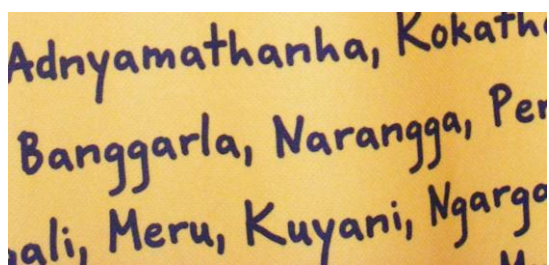 Adnyamathanha, Kokatha
Banggarla, Narangga, Per
ali, Meru, Kuyani, Ngarga